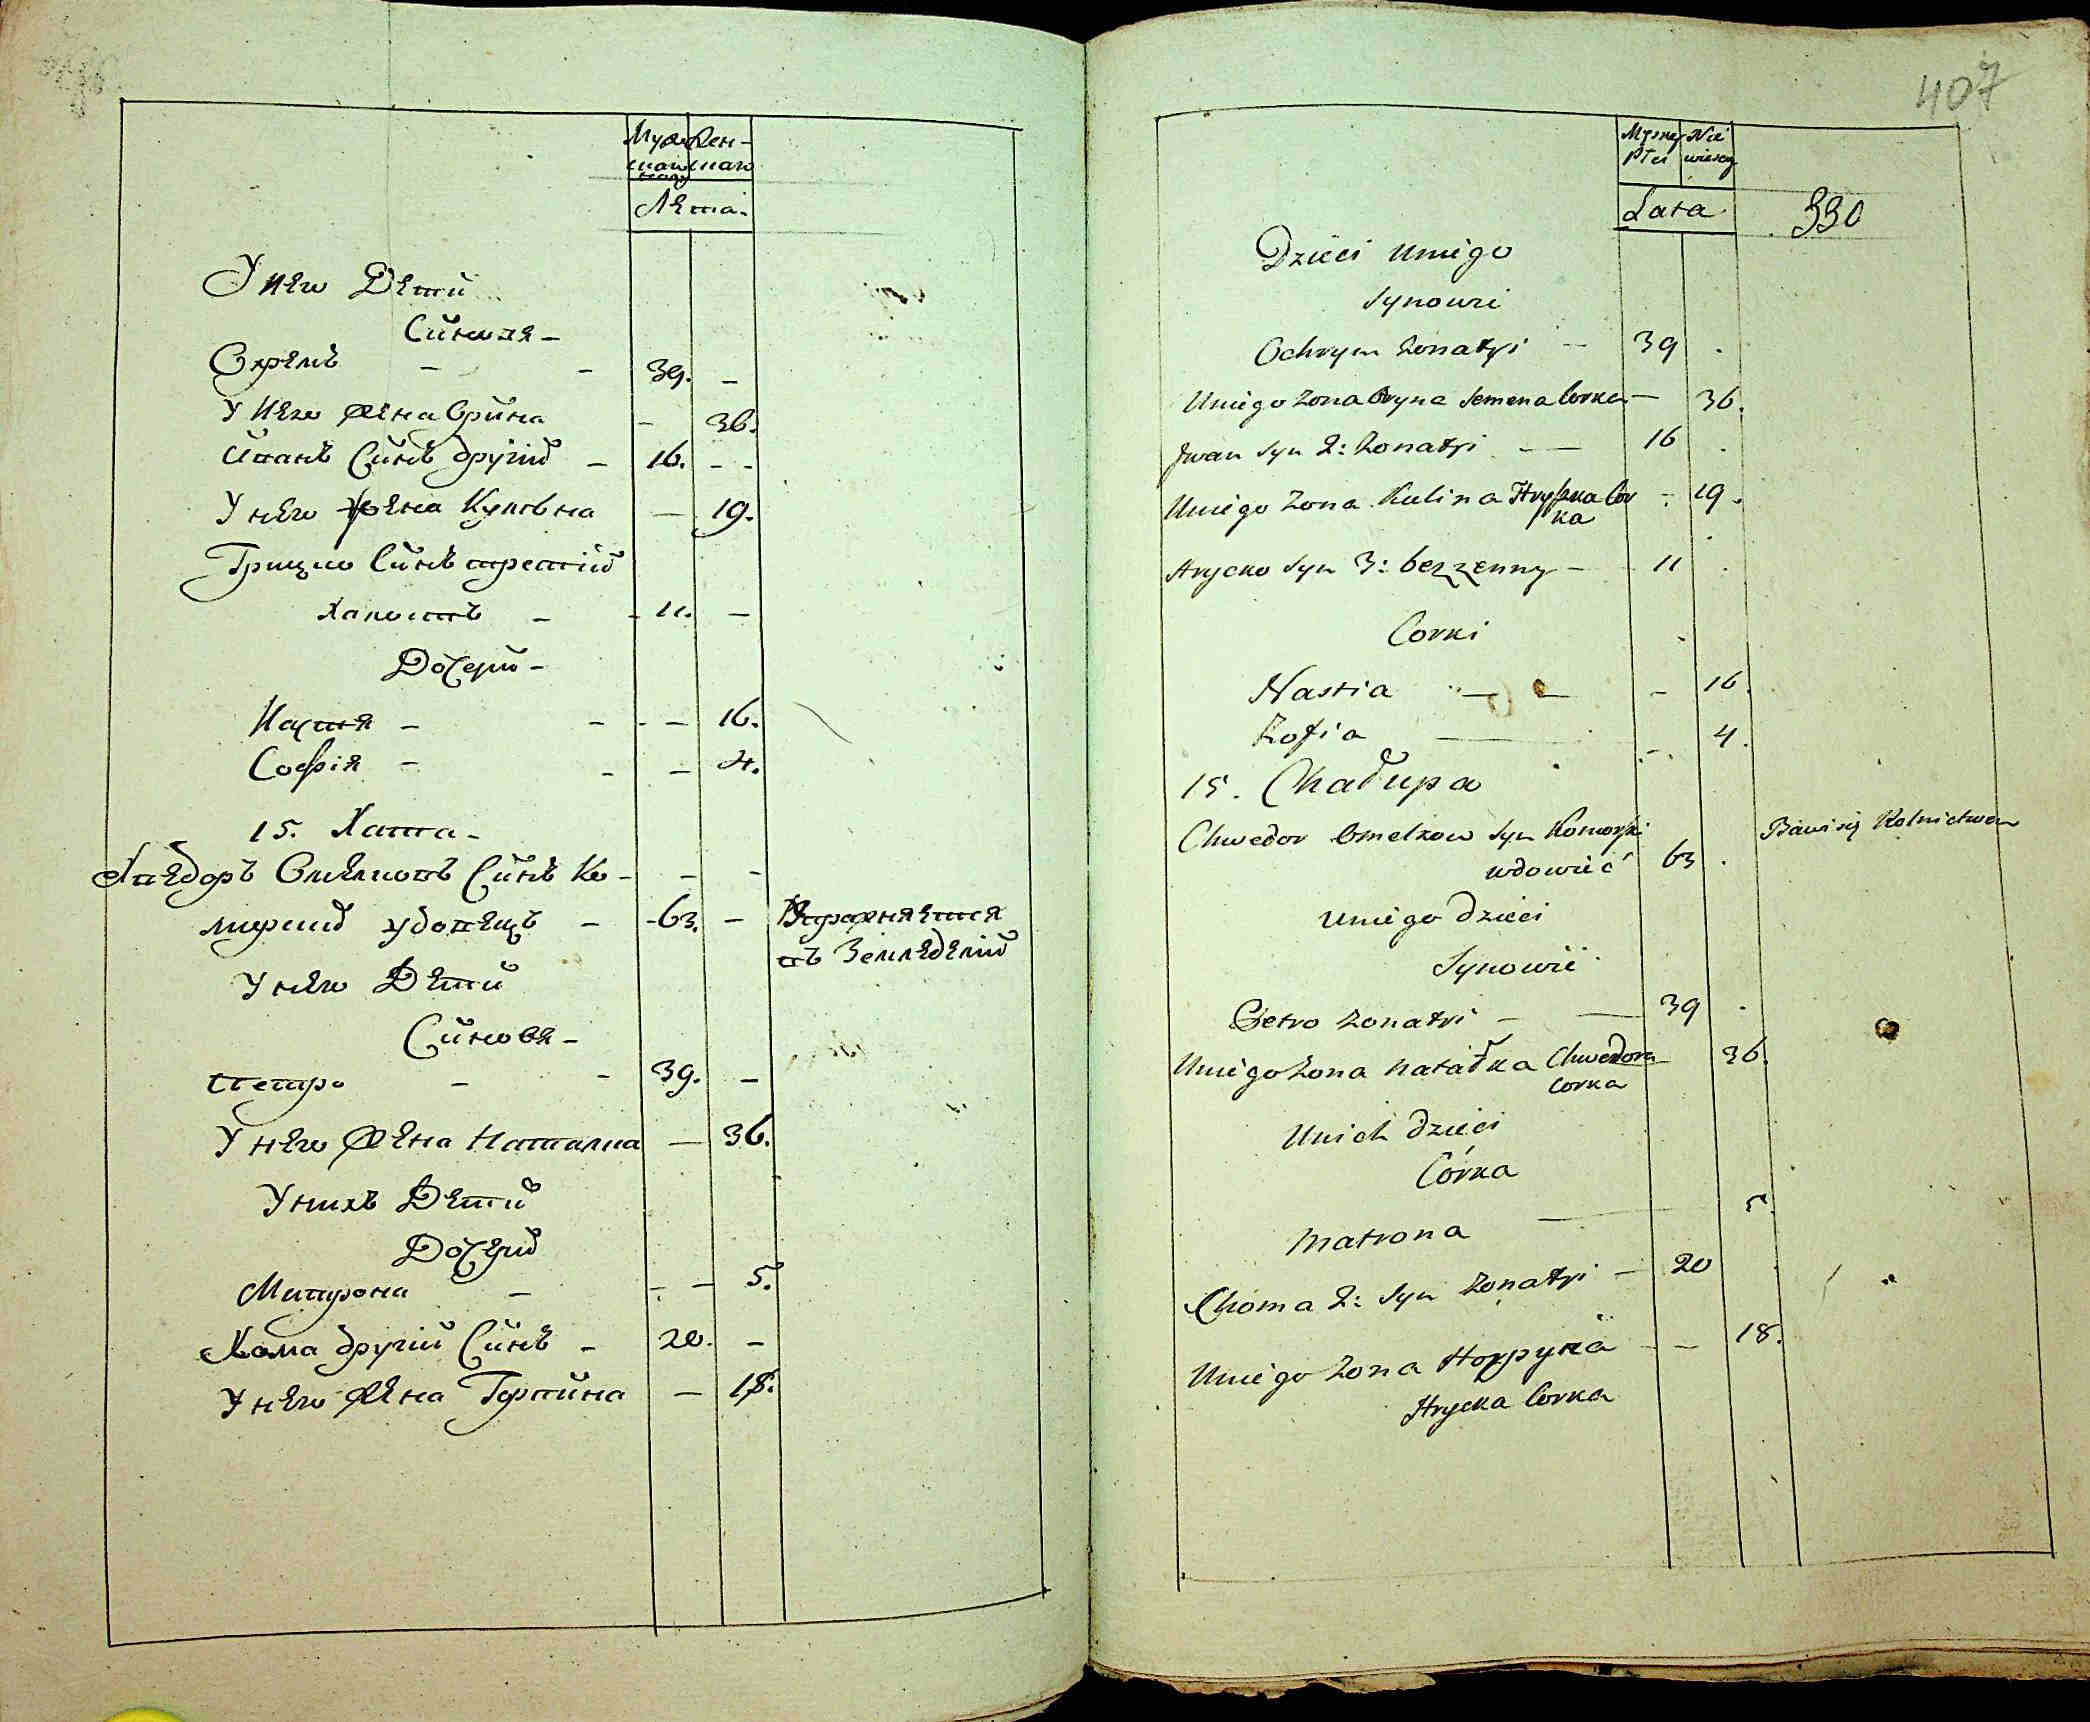 Муже Жен-
ска скаго
Лѣта.
У него Дѣти
Синовя -
Охрѣмъ - - 39. -
У него жена Орина - 36.
Иванъ Синъ другій - 16. - -
У него жена Кулѣна - 19.
Грицко Синъ третій
Холостъ - - 11. -
Дочери -
Настя - - - - 16.
Софія - - - 4.
15. Хата -
Хведоръ Омелковъ Синъ Ко - - -
морний удовецъ - - 63. - Упражняется
въ Земледѣліи
У него Дѣти
Синовя -
Петро - - 39. -
У него жена Наталка - 36.
У нихъ Дѣти
Дочери
Митрона - - - 5.
Хома другій Синъ - 20. -
У него жена Горпина - 18.
407
Męzkey Nie
płci wiescy
Lata 330
Dzieci uniego
Synowie
Ochrym żonaty - 39 .
Uniego żona Oryna Semena Corka - 36.
Jwan syn 2: żonaty - 16 .
Uniego żona Kulina Hryska Cor - 19.
ka
Hrycko syn 3: bezżenny - 11 .
Corki
Nastia - - - 16.
Zofia - - 4.
15. Chałupa
Chwedor Omelkow syn Komorny Bawi się Rolnictwem
wdowieć 63 .
uniego dzieci
Synowie
Petro żonaty - - 39 .
Uniego żona Natałka Chwedora 36.
Corka
Unich dzieci
Córka
Matrona - 5.
Choma 2: syn żonaty - 20
Uniego żona Horpyna - - 18.
Hrycka Corka